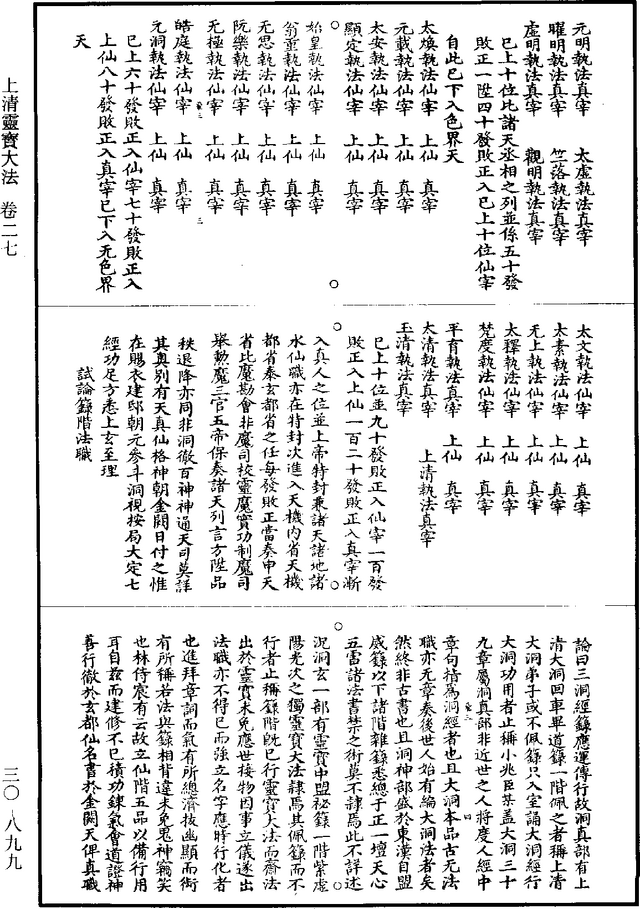 上清靈寶大法　卷二七
三〇·八九九
元明執法真宰　太虛執法真宰
曜明執法真宰　竺落執法真宰
虛明執法真宰　觀明執法真宰
已上十位比諸天丞相之列並係五十發
敗正一陞四十發敗正入已上十位仙宰
自此已下入色界天
太煥執法仙宰　上仙　真宰
元載執法仙宰　上仙　真宰
太安執法仙宰　上仙　真宰
顯定執法仙宰　上仙　真宰
始皇執法仙宰　上仙　真宰
翁重執法仙宰　上仙　真宰
无思執法仙宰　上仙　真宰
阮樂執法仙宰　上仙　真宰
无極執法仙宰　上仙　真宰
皓庭執法仙宰　上仙　真宰
元洞執法仙宰　上仙　真宰
已上六十發敗正入仙宰七十發敗正入
上仙八十發敗正入真宰已下入无色界
天
太文執法仙宰　上仙　真宰
太素執法仙宰　上仙　真宰
无上執法仙宰　上仙　真宰
太釋執法仙宰　上仙　真宰
梵度執法仙宰　上仙　真宰
平育執法真宰　上仙　真宰
太清執法真宰　上清執法真宰
玉清執法真宰
已上十位並九十發敗正入仙宰一百發
敗正入上仙一百二十發敗正入真宰漸
入真人之位並上帝特封兼諸天諸地諸
水仙職亦在特封次進入天機內省天機
都省泰玄都省之任每發敗正當奏申天
省比魔勘會非魔司校靈魔寶功制魔司
舉勳魔三官五帝保奏諸天列言方陞品
秩退降亦同非洞徹百神神通天司莫詳
其奧別有天真仙格神朝金闕日付之惟
在賜衣建邸朝元參斗洞視按局大定七
經功足方悉上玄至理
試論籙階法職
論曰三洞經籙應運傳行故洞真部有上
清大洞回車畢道籙一階佩之者稱上清
大洞弟子或不佩籙只入室誦大洞經行
大洞功用者止稱小兆臣某蓋大洞三十
九章屬洞真部非近世之人將度人經中
章句搢為洞經者也且大洞本品古无法
職亦元章奏後世人始有編大洞法者矣
然終非古書也且洞神部盛於東漢自盟
威籙以下諸階雜籙悉總于正一壇天心
五雷諸法書禁之術莫不隷焉此不詳述
況洞玄一部有靈寶中盟祕籙一階紫虛
陽光次之獨靈寶大法隷焉其佩籙而不
行者止稱籙階既已行靈寶大法而齋法
出於靈寶未免應世接物因事立儀遂出
法職亦不得已而強立名字應時行化者
也進拜章詞而氣有所總濟拔幽顯而銜
有所稱若法與籙相背違未免鬼神竊笑
也林侍宸有云故立仙階五品以備行用
耳自茲而建修不已積功鍊氣會道證神
善行徹於玄都仙名書於金闕天俾真職